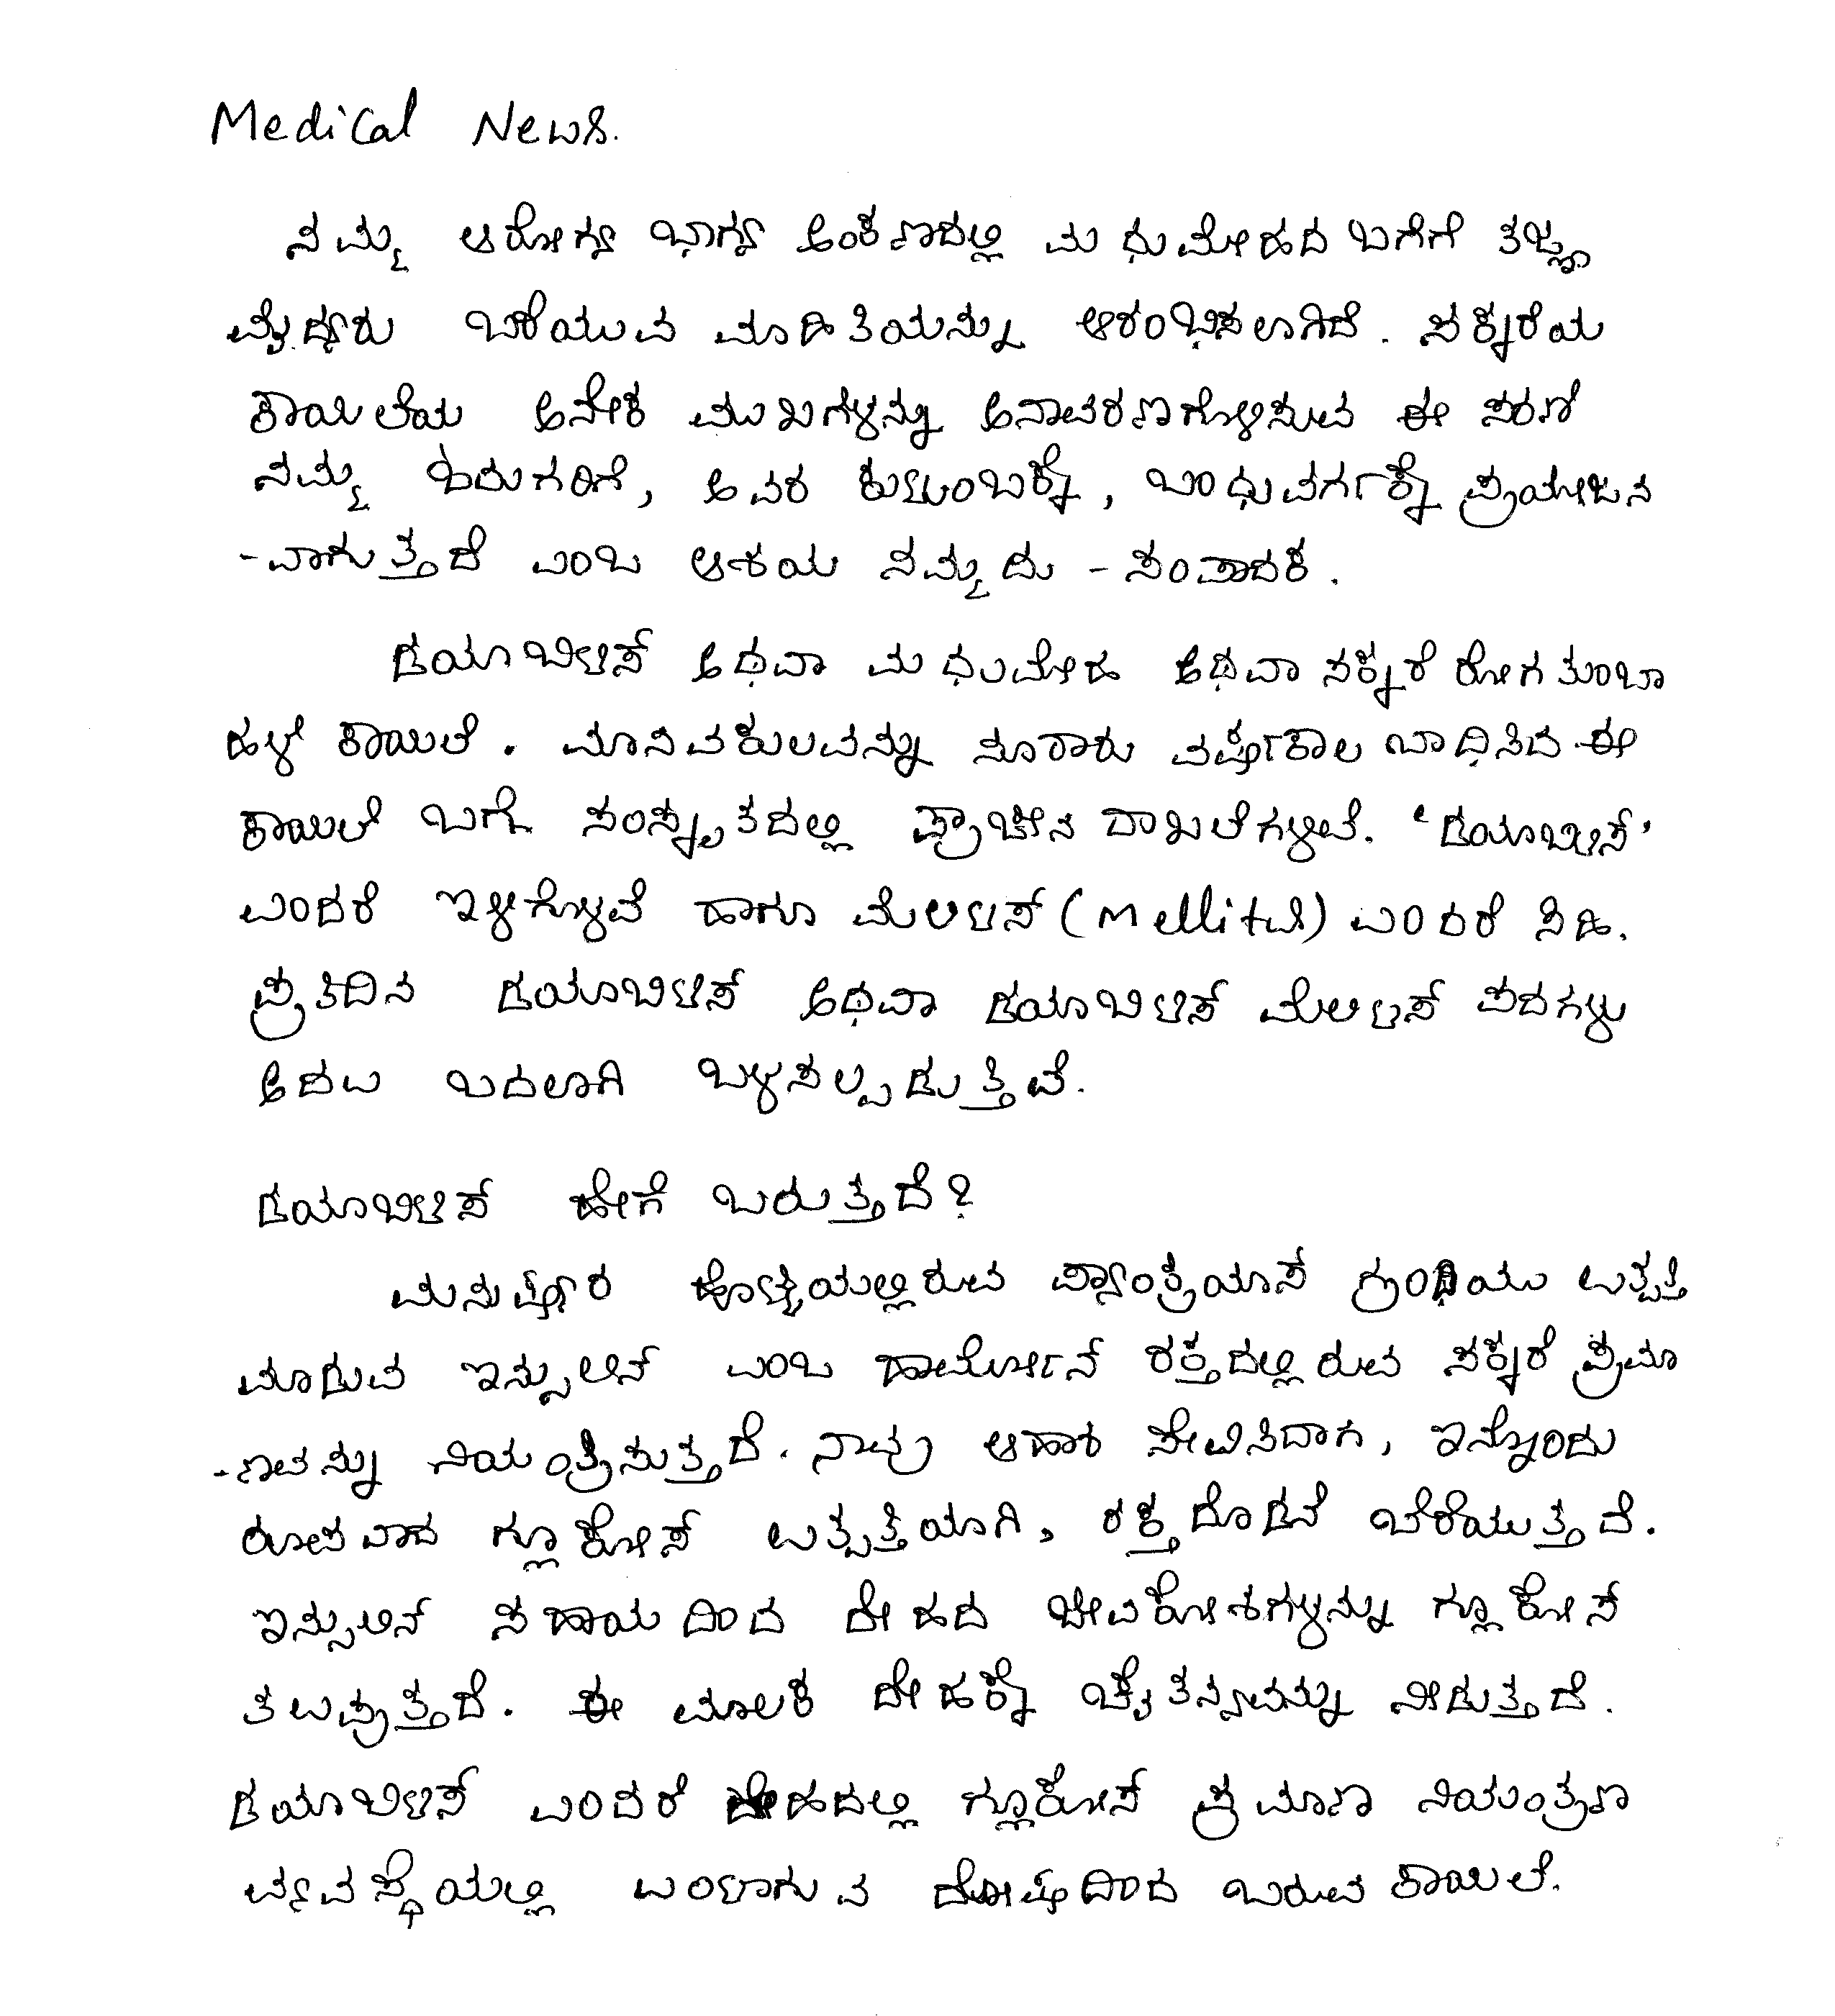 Medical News.
ನಮ್ಮ ಆರೋಗ್ಯ ಭಾಗ್ಯ ಅಂಕಣದಲ್ಲಿ ಮಧುಮೇಹದ ಬಗೆಗೆ ತಜ್ಞ
ವೈದ್ಯರು ಬರೆಯುವ ಮಾಹಿತಿಯನ್ನು ಆರಂಭಿಸಲಾಗಿದೆ. ಸಕ್ಕರೆಯ
ಕಾಯಿಲೆಯ ಅನೇಕ ಮುಖಗಳನ್ನು ಅನಾವರಣಗೊಳಿಸುವ ಈ ಸರಣಿ
ನಮ್ಮ ಓದುಗರಿಗೆ, ಅವರ ಕುಟುಂಬಕ್ಕೆ, ಬಂಧುವರ್ಗಕ್ಕೆ ಪ್ರಯೋಜನ
-ವಾಗುತ್ತದೆ ಎಂಬ ಆಶಯ ನಮ್ಮದು - ಸಂಪಾದಕ.
ಡಯಾಬಿಟಿಸ್ ಅಥವಾ ಮಧುಮೇಹ ಅಥವಾ ಸಕ್ಕರೆ ರೋಗ ತುಂಬಾ
ಹಳೆ ಕಾಯಿಲೆ. ಮಾನವಕುಲವನ್ನು ನೂರಾರು ವರ್ಷಕಾಲ ಬಾಧಿಸಿದ ಈ
ಕಾಯಿಲೆ ಬಗ್ಗೆ ಸಂಸ್ಕೃತದಲ್ಲಿ ಪ್ರಾಚೀನ ದಾಖಲೆಗಳಿವೆ. 'ಡಯಾಬಿಟಿಸ್'
ಎಂದರೆ ಇಳಿಗೊಳವೆ ಹಾಗೂ ಮೆಲಿಟಸ್ (Mellitus) ಎಂದರೆ ಸಿಹಿ.
ಪ್ರತಿದಿನ ಡಯಾಬಿಟಿಸ್ ಅಥವಾ ಡಯಾಬಿಟಿಸ್ ಮೆಲಿಟಸ್ ಪದಗಳು
ಅದಲು ಬದಲಾಗಿ ಬಳಸಲ್ಪಡುತ್ತಿವೆ.
ಡಯಾಬಿಟಿಸ್ ಹೇಗೆ ಬರುತ್ತದೆ?
ಮನುಷ್ಯರ ಹೊಟ್ಟೆಯಲ್ಲಿರುವ ಪ್ಯಾಂಕ್ರಿಯಾಸ್ ಗ್ರಂಥಿಯು ಉತ್ಪತ್ತಿ
ಮಾಡುವ ಇನ್ಸುಲಿನ್ ಎಂಬ ಹಾರ್ಮೋನ್ ರಕ್ತದಲ್ಲಿರುವ ಸಕ್ಕರೆ ಪ್ರಮಾ
-ಣವನ್ನು ನಿಯಂತ್ರಿಸುತ್ತದೆ. ನಾವು ಆಹಾರ ಸೇವಿಸಿದಾಗ, ಇನ್ನೊಂದು
ರೂಪವಾದ ಗ್ಲೂಕೋಸ್ ಉತ್ಪತ್ತಿಯಾಗಿ, ರಕ್ತದೊಡನೆ ಬೆರೆಯುತ್ತದೆ.
ಇನ್ಸುಲಿನ್ ಸಹಾಯದಿಂದ ದೇಹದ ಜೀವಕೋಶಗಳನ್ನು ಗ್ಲೂಕೋಸ್
ತಲುಪುತ್ತದೆ. ಈ ಮೂಲಕ ದೇಹಕ್ಕೆ ಚೈತನ್ಯವನ್ನು ನೀಡುತ್ತದೆ.
ಡಯಾಬಿಟಿಸ್ ಎಂದರೆ ದೇಹದಲ್ಲಿ ಗ್ಲೂಕೋಸ್ ಪ್ರಮಾಣ ನಿಯಂತ್ರಣ
ವ್ಯವಸ್ಥೆಯಲ್ಲಿ ಉಂಟಾಗುವ ದೋಷದಿಂದ ಬರುವ ಕಾಯಿಲೆ.